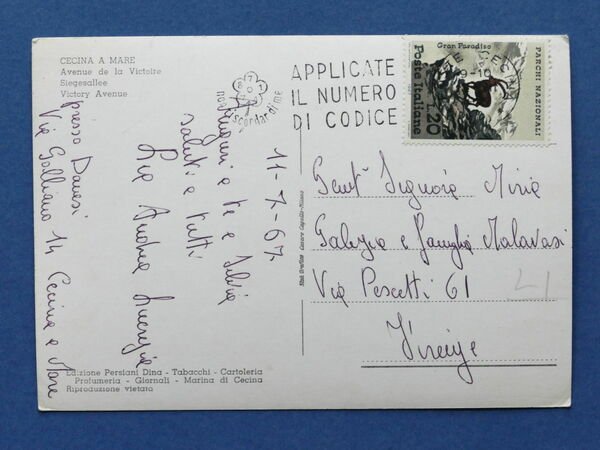 CECINA A MARE
Avenue de la Victoire
Siegesallee
Victory Avenue
APPLICATE
IL NUMERO
DI CODICE
non scordar di me
Gran Paradiso
PARCHI NAZIONALI
Poste Italiane L.20
11-7-67
Auguri a te e Silvia
saluti a tutti
Andrea Lucrezia
presso Danesi
Via Galliano 14 Cecina a Mare
Gent. Signora
e Famiglia Malavasi
Via Pescetti 61
Firenze
Edizione Persiani Dina - Tabacchi - Cartoleria
Profumeria - Giornali - Marina di Cecina
Riproduzione vietata